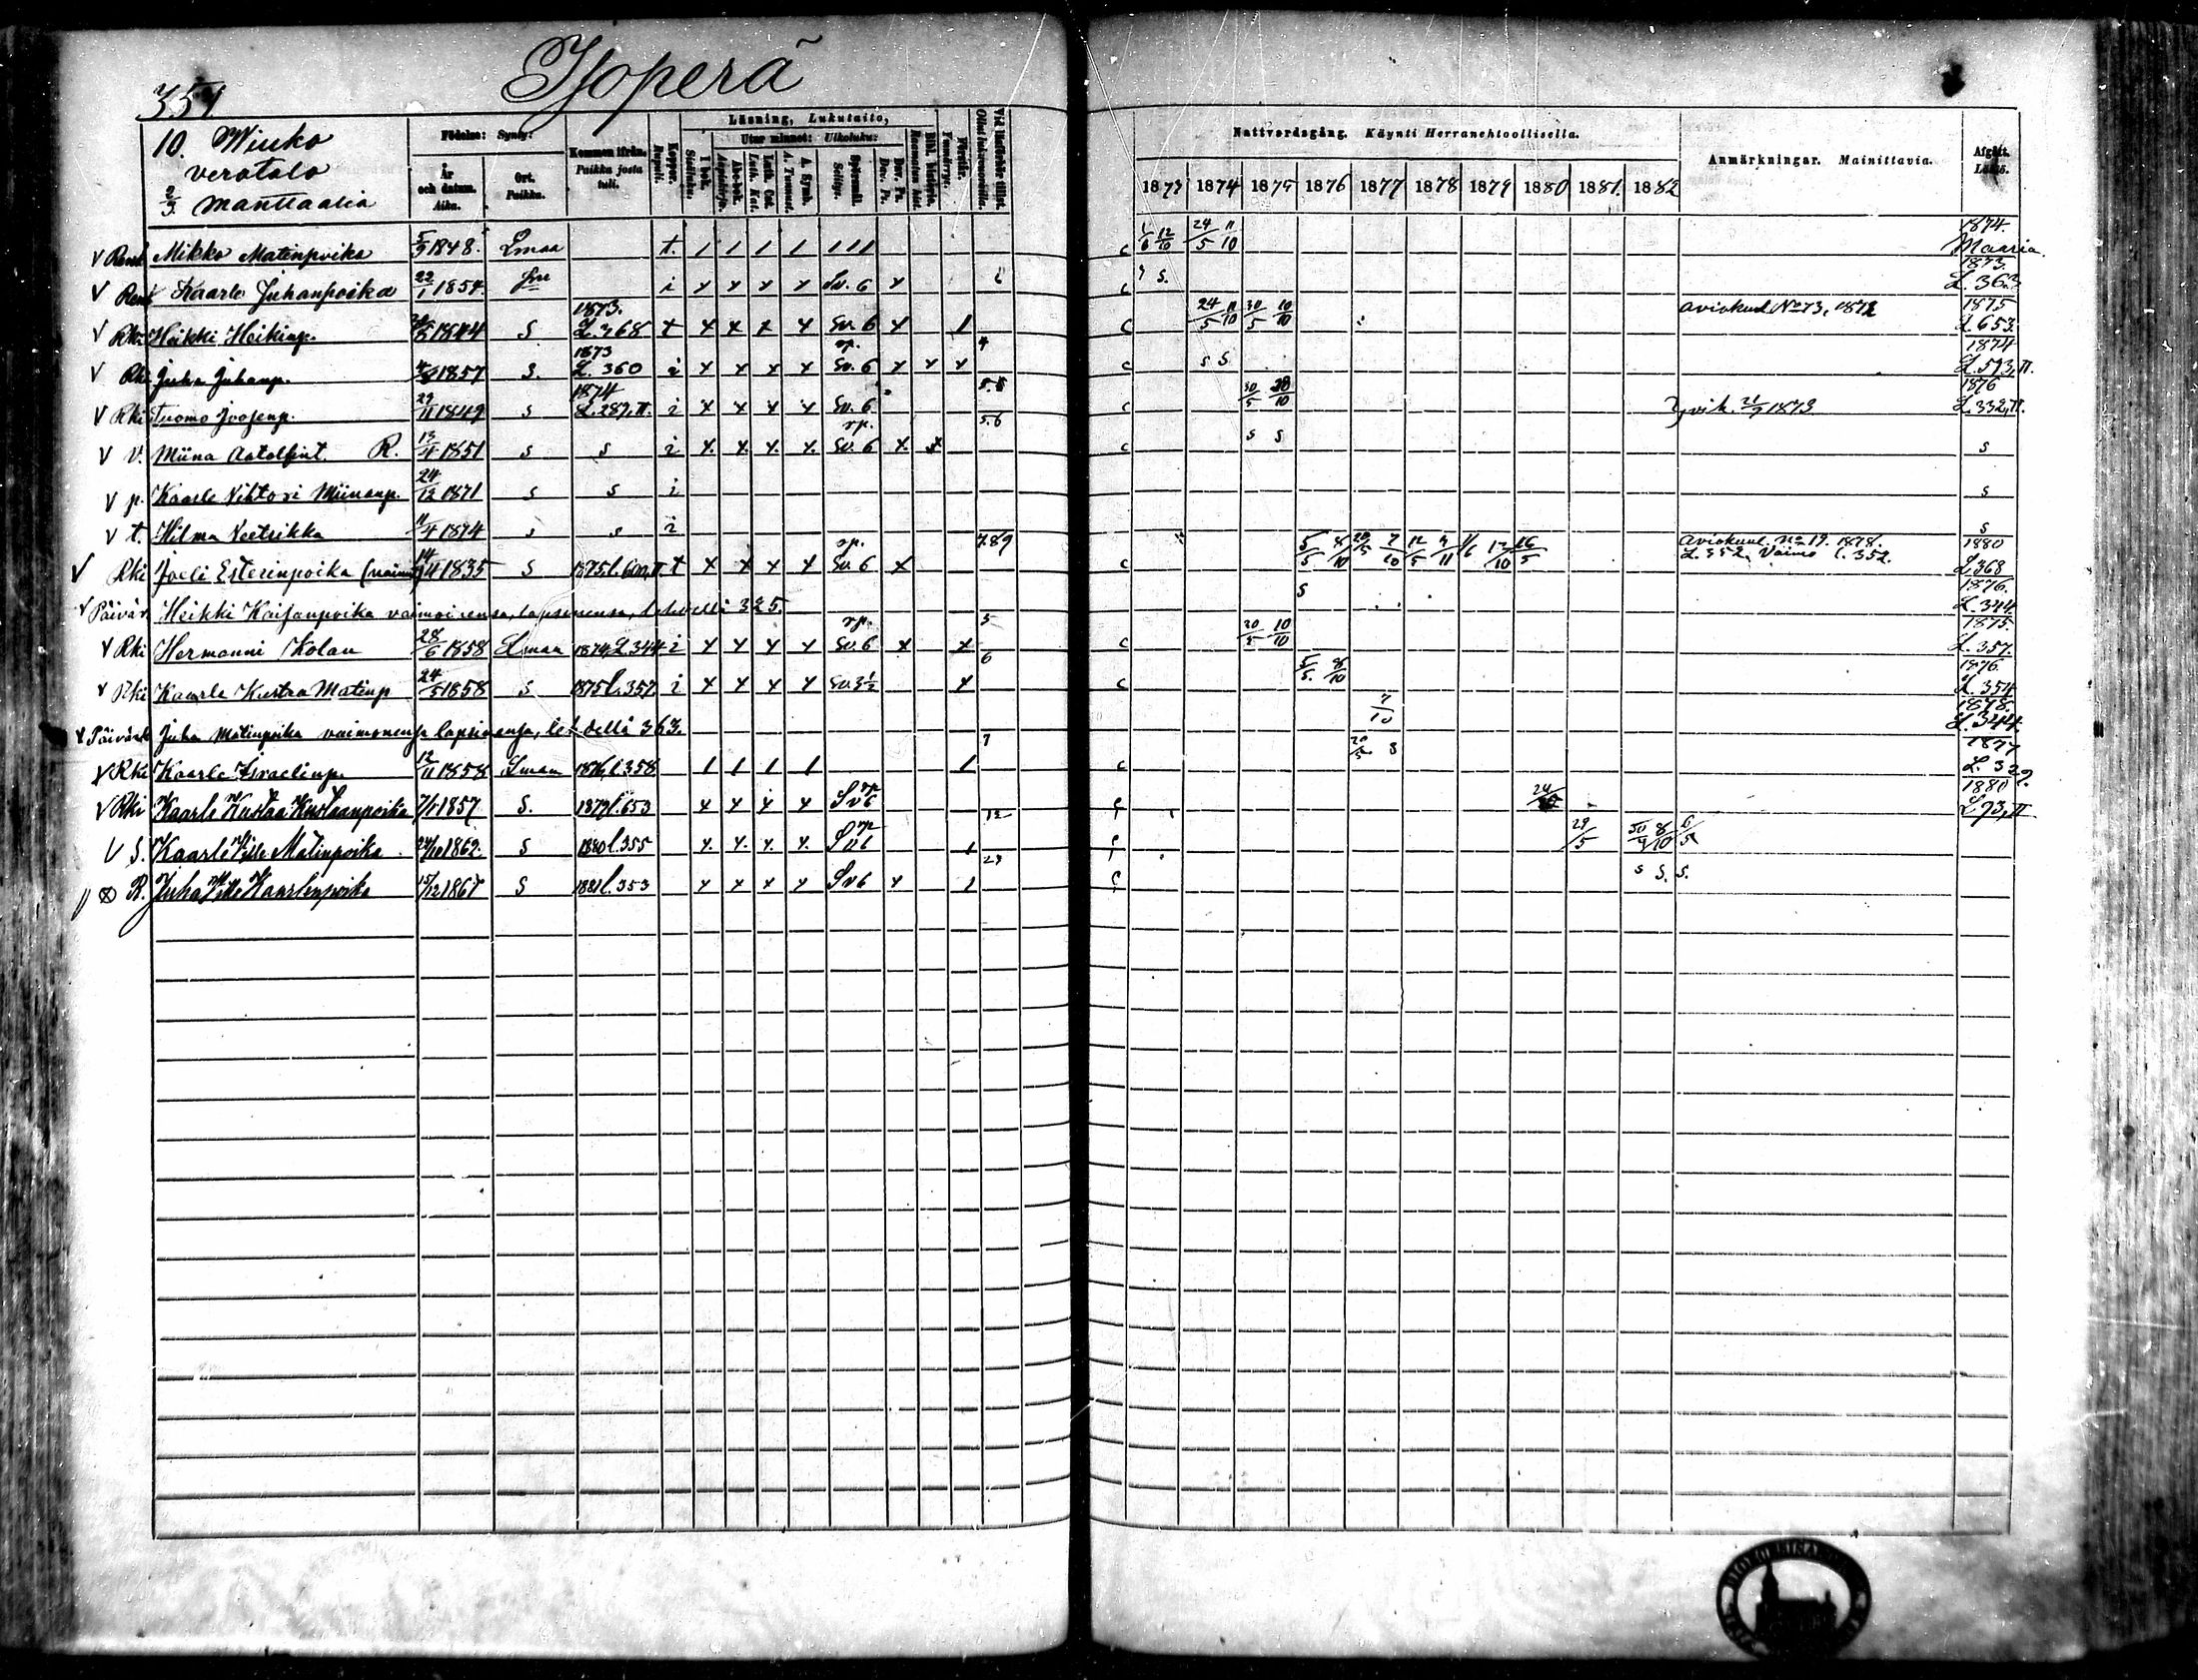 351.
Isoperä
10. Winko
verotalo
2/3 manttaalia
Födelse: Synty:
År och datum. Aika.
Ort. Paikka.
Kommen ifrån. Paikka josta tuli.
Koppor. Rupuli.
Läsning, Lukutaito,
I bok. Sisäluku.
Utur minnet: Ulkoluku:
Abc-bok. Aapiskirja.
Luth. Kat.
A. Symb. A. Tunnust.
Spörsmål. Selitys.
Dav. Ps. Dav. Ps.
Förstår. Ymmärrys.
Nattvardsgång. Käynti Herranehtoollisella.
1873 1874 1875 1876 1877 1878 1879 1880 1881 1882
Anmärkningar. Mainittavia.
Afgått. Lähtö.
Mikko Matinpoika 5/9 1848. t. 1 1 1 1 1 1 1 c 24/5 11/10 1874. Maaria
Kaarle Juhanpoika 22/1 1854. i x x x x Sv. 6 x c s. 1873. L. 363
Rki Heikki Heikinp. 1844 S 1873. L. 368 t x x x x Sv. 6 x 1 c 24/5 11/10 30/5 10/10 aviokuul. No 73, 1872 1875 L 653.
Rki Juha Juhanp. 1857 S. 1873 L. 360 i x x x x Sv. 6 x x x 4 c s s 1874 L. 593, II.
Rki Tuomo Joosenp. 29/11 1849 S 1874 L. 289, II. i x x x x Sv. 6 c 30/5 10/10 21/7 1873 1876 L. 332, II.
V. Miina Aatolfint. R. 13/4 1851 s s i x. x. x. x. Sv. 6 x. x 5.6 c s s s
p. Kaarle Vihtori Miinanp. 24/12 1871 s s i s
t. Hilma 11/4 1874 s s i s
Rki Joeli Esterinpoika 14/4 1835 S 1875 l. 600, II. t x x x x Sv. 6 x 7.8.9 c 5/5 8/10 20/5 7/10 12/5 11/6 12/10 16/5 aviokuul. No 19. 1878. L. 352, Vaimo l. 352. 1880 L. 368
Päivär. Heikki Kaisanpoika vaimoinensa, lapsinensa, lehdellä 325. s 1876. L. 344
Rki Hermanni Kolan 28/6 1858 1874, L. 344 i x x x x Sv. 6 x x 5 c 30/5 10/10 1875. L. 357.
Rki Kaarle Kustaa Matinp 24/5 1858 S 1875 l. 357. i x x x x Sv. 3½ x 6 c 5/5. 8/10 1876. L. 354
Päivär. Juha Matinpoika vaimonensa lapsinensa, lehdellä 363. 7/10 1878. L. 344.
Rki Kaarle Israelinp. 12/11 1858 1876 l. 358. 1 1 1 1 1 7 c 20/5 s 1877 L 329.
Rki Kaarle Kustaa Kustaanpoika 1857 S. 1879 l. 653 x x x x Sv 6 1880 L 73, II
S. Kaarle Ville Matinpoika 1862. S 1880 l. 355 x. x. x. x. Sv 6 1 29/5 8/10 6/5
R. Juha Ville Kaarlenpoika 15/12 1867 S 1881 l. 353 x x x x Sv 6 x 1 s s. s.